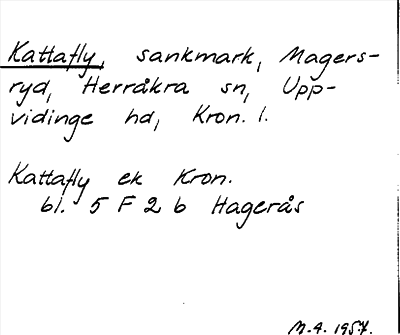 Kattafly, sankmark, Magers-
ryd, Herråkra sn, Upp-
vidinge hd, Kron. l.
Kattafly ek Kron.
bl. 5 F 2 b Hagerås
M.A. 1957.